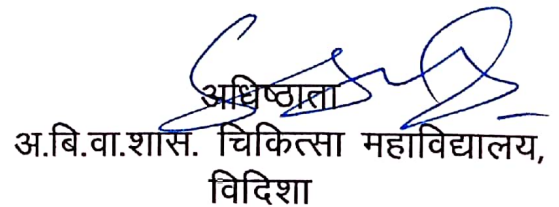 अधिष्ठाता
अ.बि.वा.शास. चिकित्सा महाविद्यालय,
विदिशा